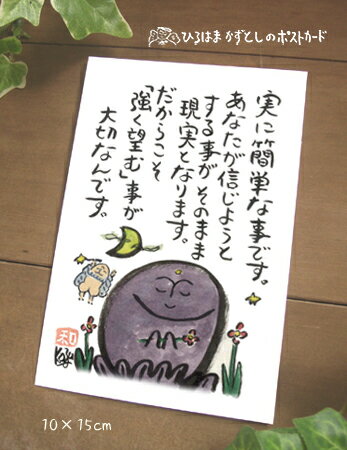 ひろはまかずとしのポストカード
実に簡単な事です。
あなたが信じようと
する事がそのまま
現実となります。
だからこそ
「強く望む」事が
大切なんです。
和
10×15cm